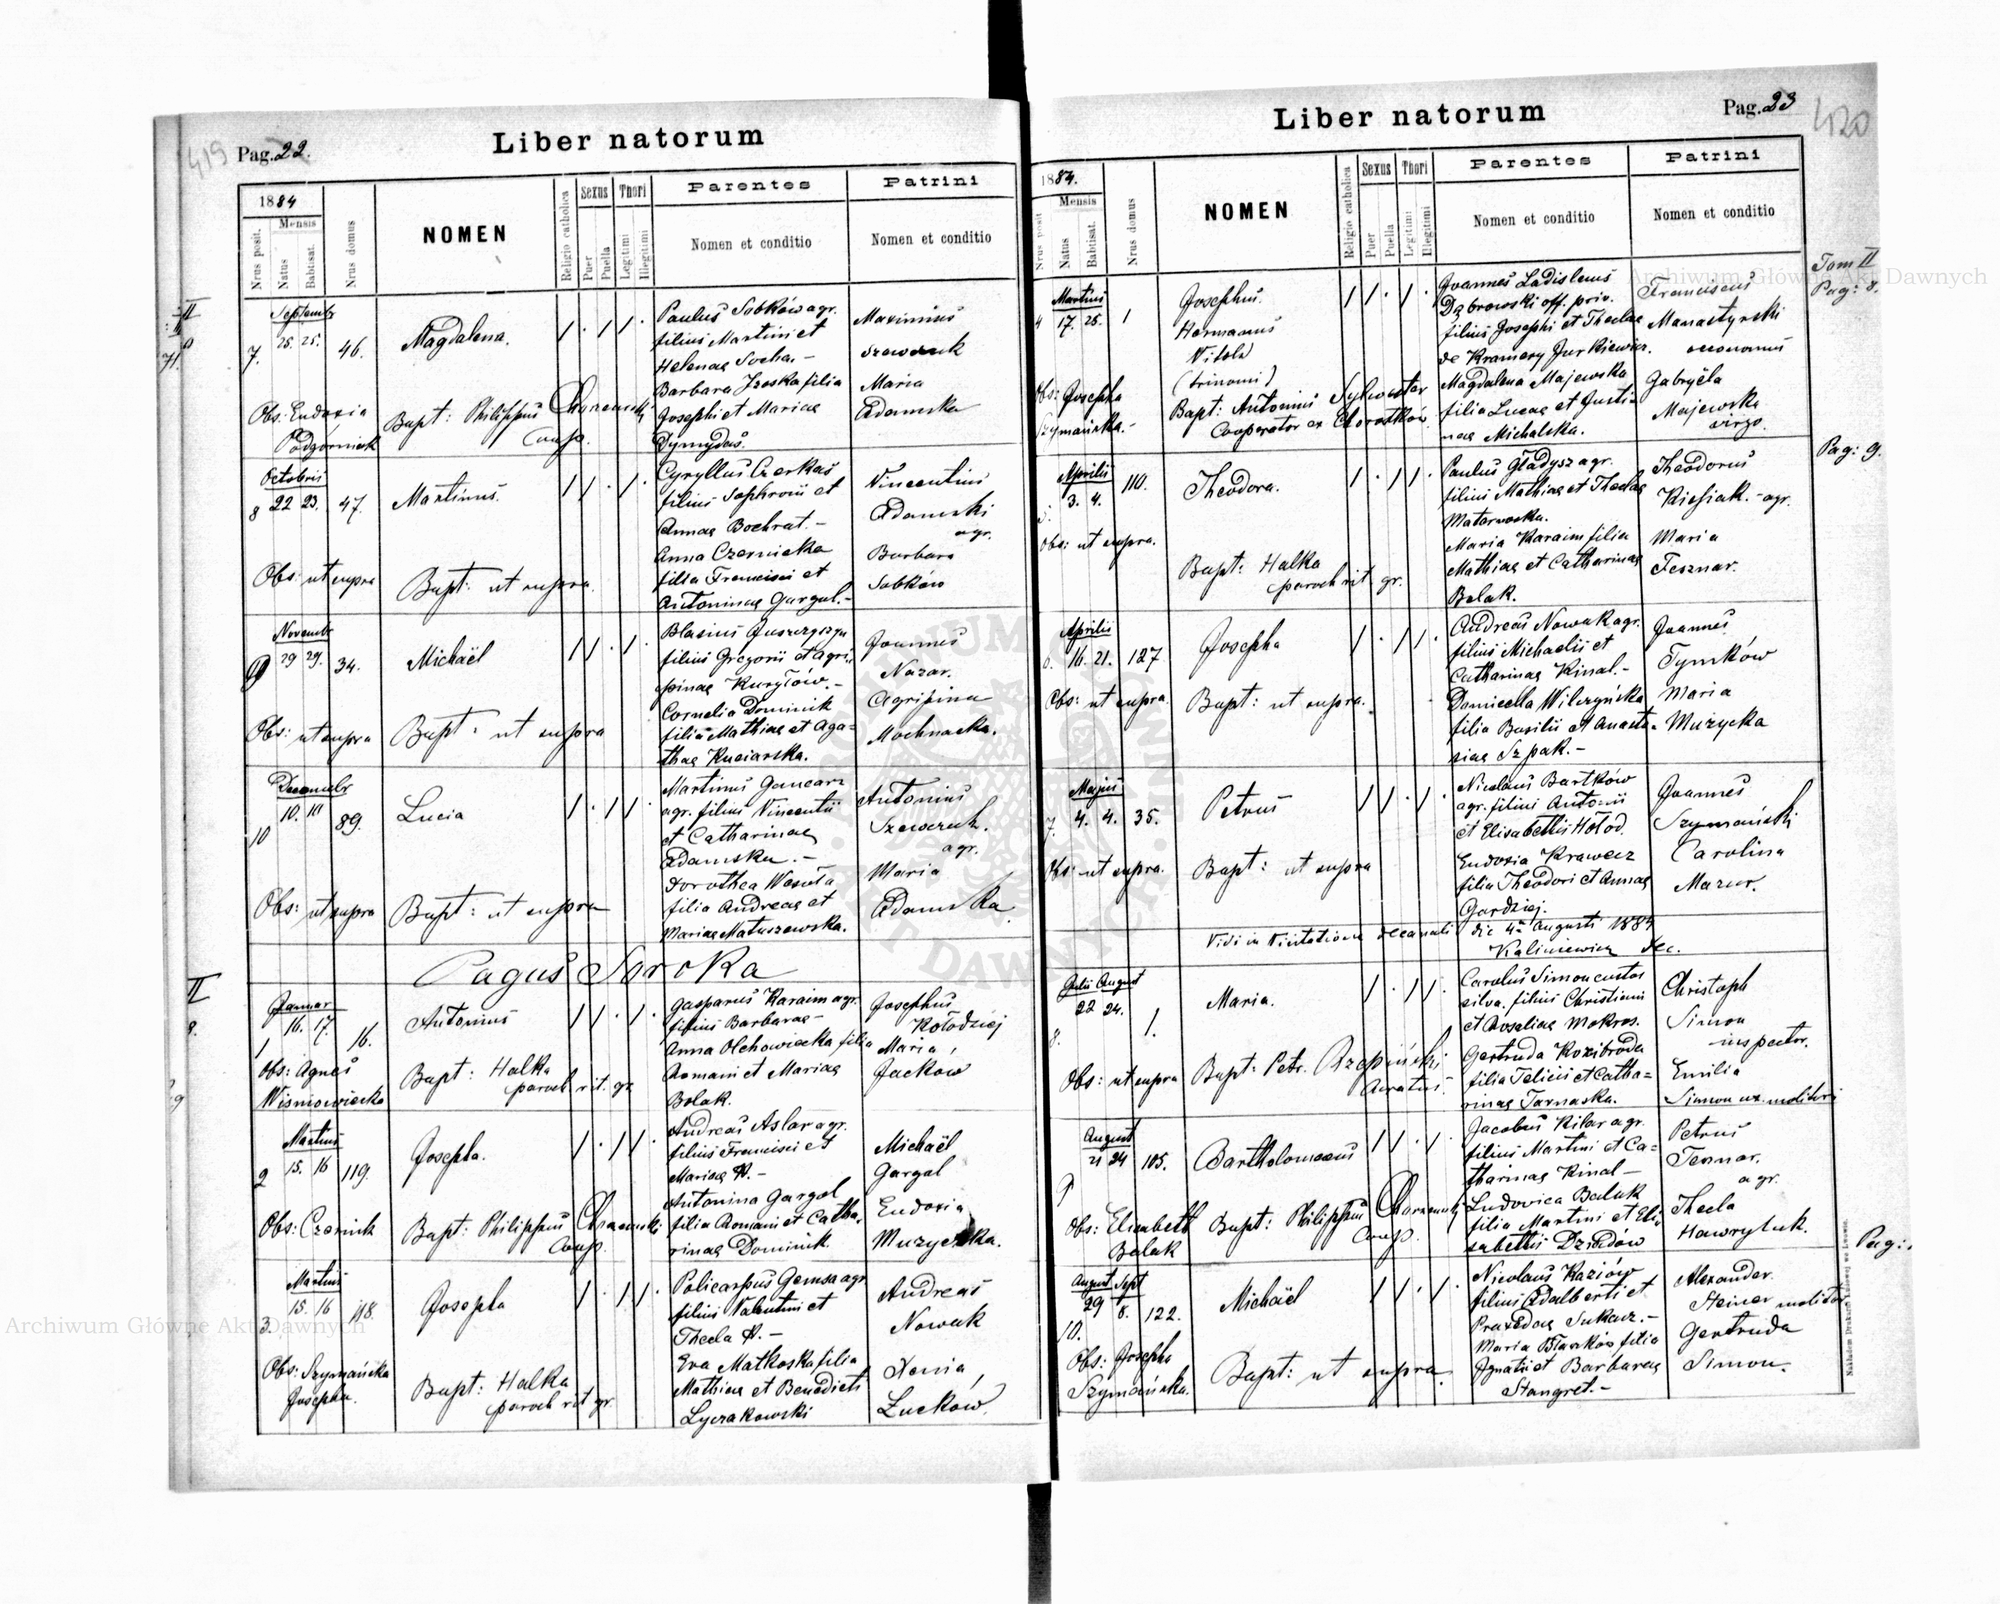 419
Pag. 22.
Liber natorum
1884
Nrus posit.
Mensis
Natus
Babtisat.
Nrus domus
NOMEN
Religio catholica
Sexus
Puer
Puella
Thori
Legitimi
Illegitimi
Parentes
Nomen et conditio
Patrini
Nomen et conditio
7.
Septembr
25. 25.
46.
Magdalena.
Obs: Eudoxia
Podgórniak
Bapt: Philippus
Coop.
Paulus Sobków agr.
filius Martini et
Helenae Socha. –
Barbara Izoska filia
Josephi et Mariae
Dymydas.
Maximus
Szewczuk
Maria
Adamska
8
Octobris
22 23.
47.
Martinus.
Obs: ut supra
Bapt: ut supra.
Cyryllus Czerkas
filius Sophronii et
Annae Bochrat. –
Anna Czernicka
filia Francisci et
Antoninae Gargul. –
Vincentius
Adamski
agr.
Barbara
Sobków
9
Novembr
29 29.
34.
Michaël
Obs: ut supra
Bapt: ut supra
Blasius
filius Gregorii et Agri
pinae Kuryłów. –
Cornelia Dominik
filia Mathiae et Aga-
thae Kuciarska.
Joannes
Nazar.
Agripina
Mochnacka.
10
Decembr
10. 10
89.
Lucia
Obs: ut supra
Bapt: ut supra
Martinus Gancarz
agr. filius Vincentii
et Catharinae
Adamska. –
Dorothea Wesuła
filia Andreae et
Mariae Matuszewska.
Antonius
Szewczuk.
agr.
Maria
Adamska.
Pagus Soroka
II
8.
1
Januar
16. 17.
16.
Antonius
Obs: Agnes
Wisniowiecka
Bapt: Halka
paroch rit. gr
Gasparus Karaim agr.
filius Barbarae –
Anna Olchowiecka filia
Romani et Mariae
Bolak.
Josephus
Kołodziej
Maria
Jacków
2
Martius
15. 16
119.
Josepha.
Obs: Czernik
Bapt: Philippus
Coop.
Andreas Aslar agr.
filius Francisci et
Mariae N. –
Antonina Gargol
filia Romani et Catha-
rinae Dominik.
Michaël
Gargol
Eudoxia
Muzyczka.
3.
Martius
15. 16
118.
Josepha
Obs: Szymańska
Josepha.
Bapt: Halka
paroch rit gr.
Policarpus Gemsa agr
filius Valentini et
Thecla N. –
Eva Matkoska filia
Mathiae et Benedicti
Lyczakowski
Andreas
Nowak
Xenia
Zucków.
Liber natorum
Pag. 23
420
1884.
Nrus posit
Mensis
Natus
Babtisat.
Nrus domus
NOMEN
Religio catholica
Sexus
Puer
Puella
Thori
Legitimi
Illegitimi
Parentes
Nomen et conditio
Patrini
Nomen et conditio
Tom II
Pag: 8.
4
Martius
17. 25.
1
Josephus.
Hermanus
Vitold
(trinomi)
Obs: Josepha
Szymańska. –
Bapt: Antonius Sylvester
Cooperator ex Chorostków
Joannes Ladislaus
Dąbrowski off. priv.
filius Josephi et Theclae
de Kramery Jurkiewicz.
Magdalena Majewska
filia Lucae et Justi
nae Michalska.
Franciscus
Manastyrski
oeconomus
Gabryela
Majewska
virgo.
Pag: 9.
5.
Aprilis
3. 4.
110.
Theodora.
Obs: ut supra.
Bapt: Halka
paroch rit gr.
Paulus Gładysz agr.
filius Mathiae et Theclae
Matarnoska.
Maria Karaim filia
Mathiae et Catharinae
Bolak.
Theodorus
Kiesiak. – agr.
Maria
Tesznar.
6.
Aprilis
16. 21.
127
Josepha
Obs: ut supra.
Bapt: ut supra.
Andreas Nowak agr.
filius Michaelis et
Catharinae Kinal. –
Domicella Wilczyńska
filia Basilii et Anasta-
siae Szpak. –
Joannes
Tymków
Maria
Muzycka
7.
Majus
4. 4.
35.
Petrus
Obs: ut supra.
Bapt: ut supra
Nicolaus Bartków
agr. filius Antonii
et Elisabethis Hołod.
Eudoxia Krawecz
filia Theodori et Annae
Gardziej.
Joannes
Szymański
Carolina
Mazur.
Vidi in Visitatione decanali die 4ª Augusti 1884
Kaliniewicz dec.
8.
Julii August
22 24.
1.
Maria.
Obs: ut supra
Bapt: Petr. Rzepiński
Curatus
Carolus Simon custos
silva. filius Christiani
et Rosaliae Mokros.
Gertruda Kozibroda
filia Felicis et Catha-
rinae Tarnaska.
Christoph
Simon
inspector.
Emilia
Simon ux. molitoris
9
August
21 24
105.
Bartholomaeus
Obs: Elisabeth
Bolak
Bapt: Philippus
Coop.
Jacobus Kilar agr.
filius Martini et Ca-
tharinae Kinal –
Ludovica Baluk
filia Martini et Eli-
sabethis Dziedów
Petrus
Tesznar.
agr.
Thecla
Hawryluk.
Pag:
10.
August Sept
29 8.
122.
Michaël
Obs: Josepha
Szymańska.
Bapt: ut supra
Nicolaus Kaziów
filius Adalberti et
Praxedae Sukacz. –
Maria Blawków filia
Ignatii et Barbarae
Stangret. –
Alexander
Steiner molitor.
Gertruda
Simon.
Nakładem Drukarni Ludowej we Lwowie.
Archiwum Główne Akt Dawnych
Archiwum Główne Akt Dawnych